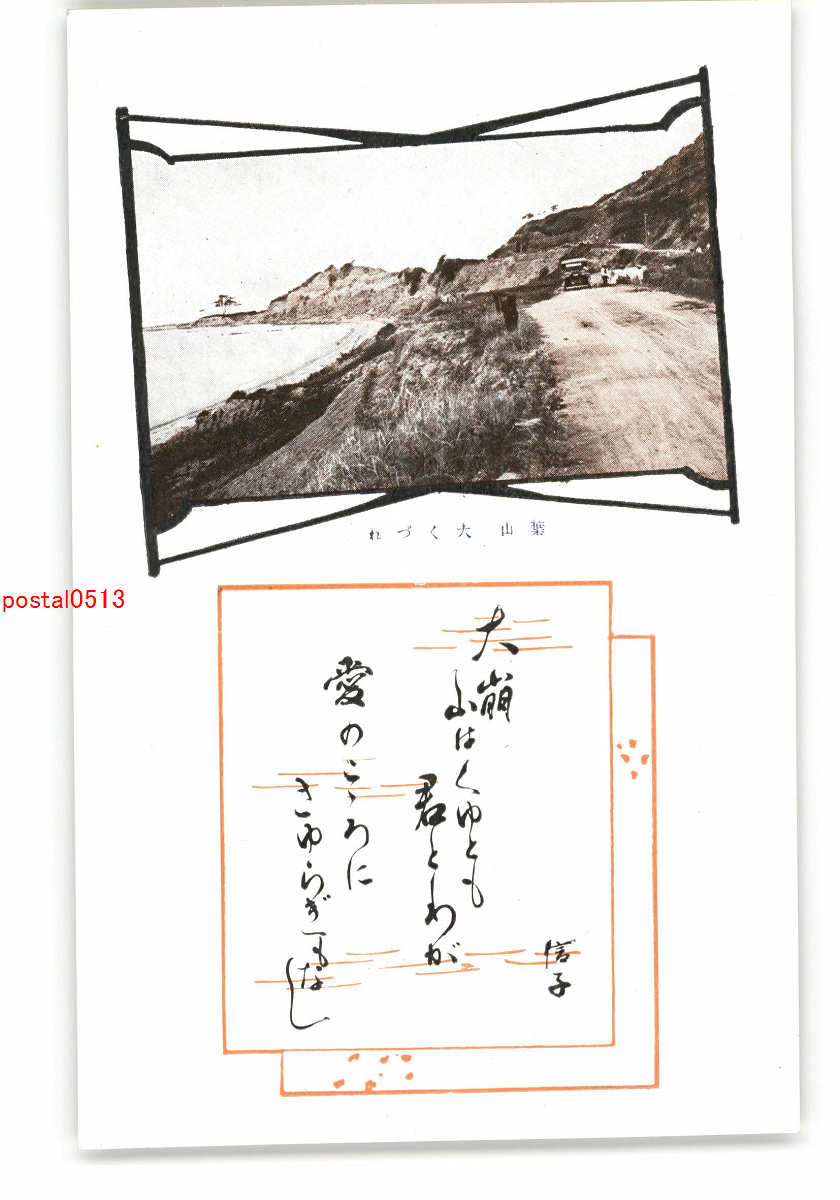 葉山 大くづれ
信子
大崩
山はくゆとも
君とわが
愛のこゝろに
さゆらぎもなし
postal0513